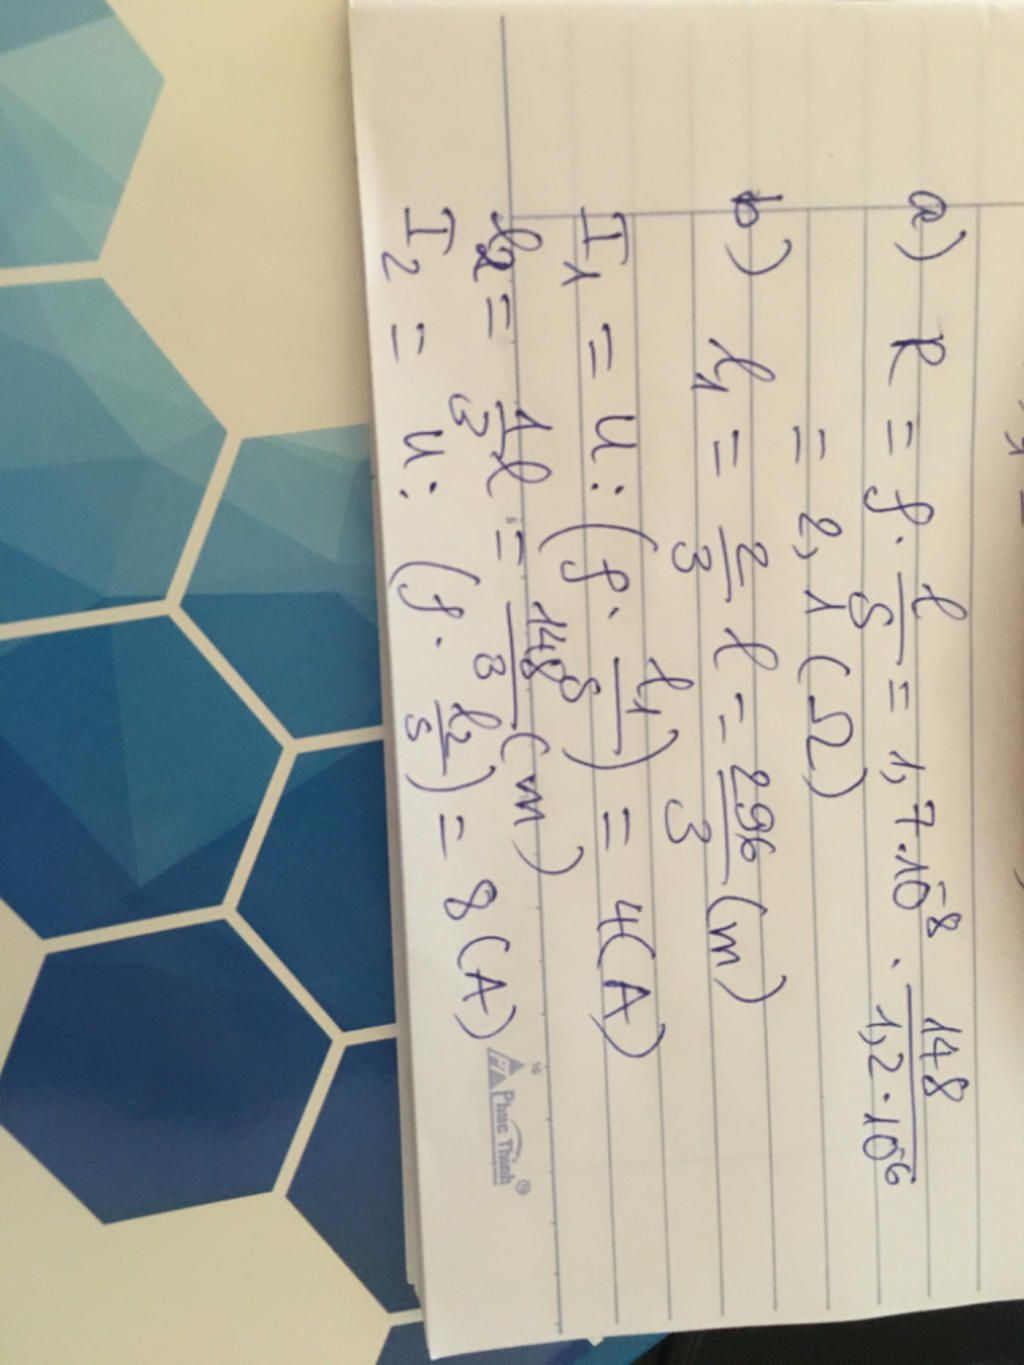 a) R = ρ · l/S = 1,7·10⁻⁸ · 148/1,2·10⁻⁶
= 2,1 (Ω)
b) l₁ = 2/3 l = 296/3 (m)
I₁ = U : (ρ · l₁/S) = 4(A)
l₂ = 1/3 l = 148/3 (m)
I₂ = U : (ρ · l₂/S) = 8(A)
16
Phuc Thinh®